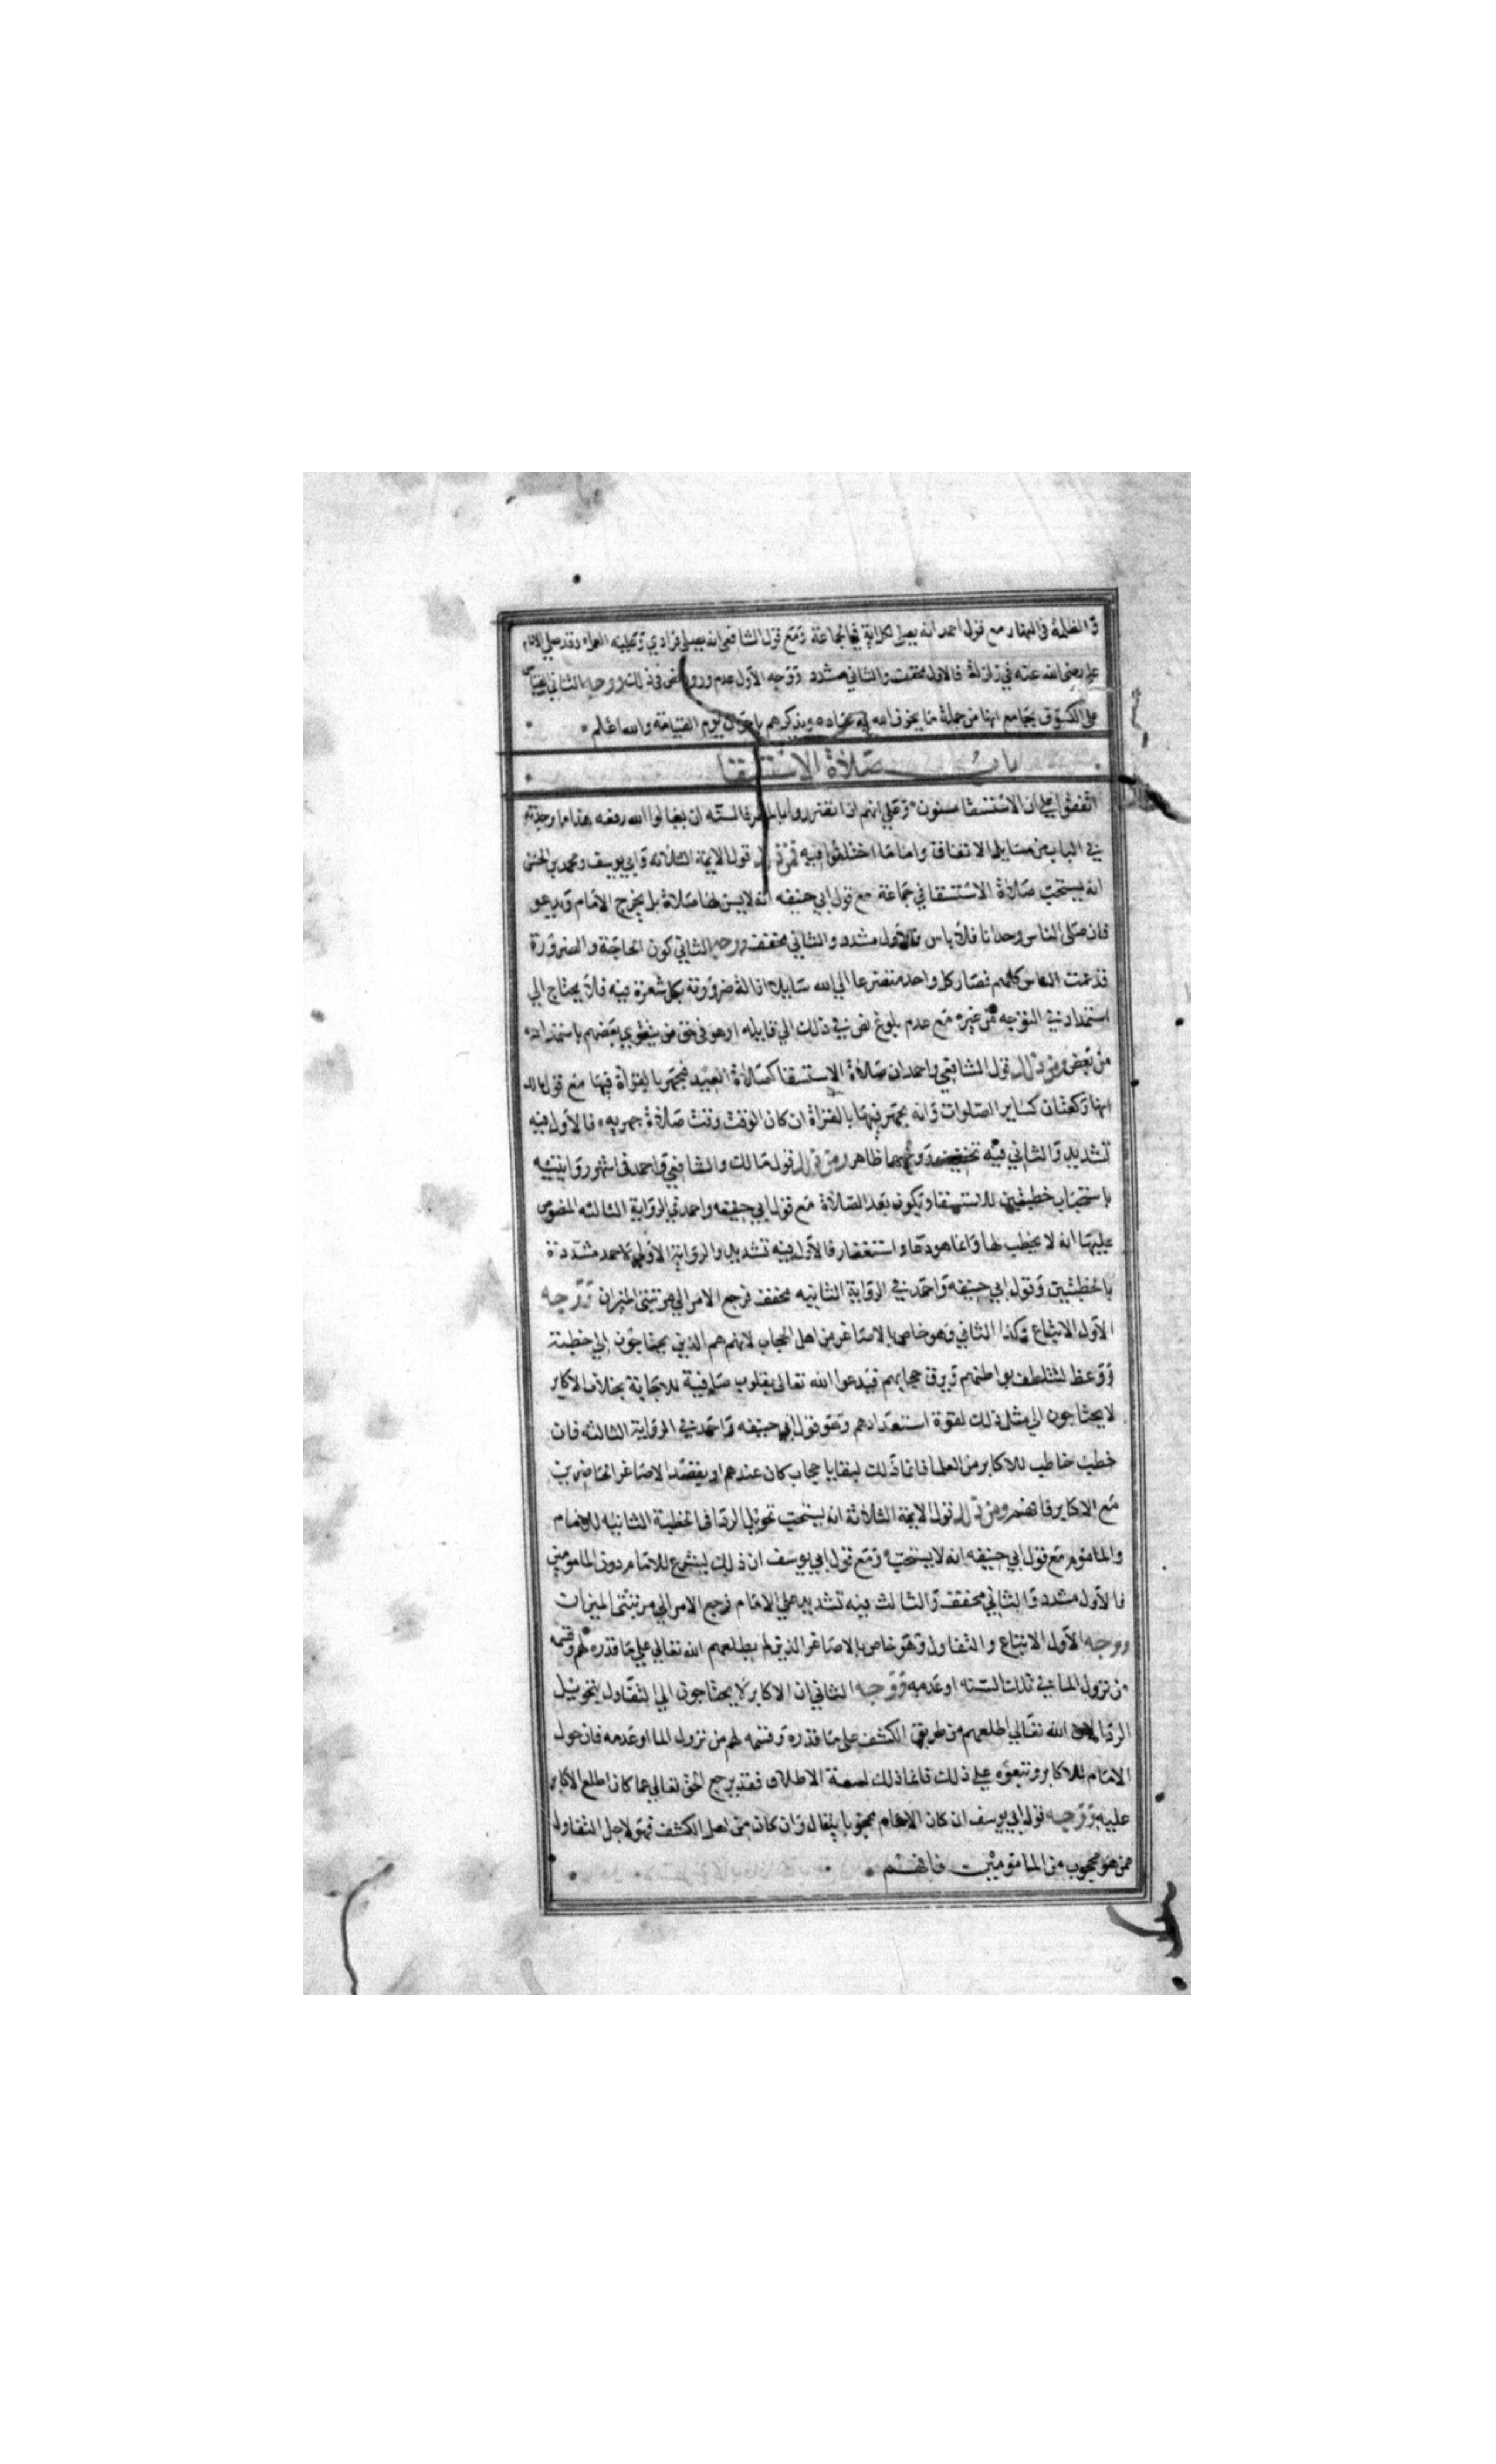 والظلمة في النهار مع قول احمد انه يصلي لكل اية في الجماعة ومع قول الشافعي انه يصلي فرادي وعليه العمل وقد صلي الامام
علي رضي الله عنه في زلزلة فالاول مخفف والثاني مشدد ووجه الاول عدم ورود نص في ذلك ووجه الثاني القياس
على الكسوف بجامع انها من جملة ما يخوف الله به عباده ويذكرهم باحوال يوم القيامة والله اعلم
باب صلاة الاستسقا
اتفقوا على ان الاستسقا مسنون وعلي انهم اذا تضرروا بالمطر فالسنة ان يسالوا الله رفعه هذا ما وجدته
في الباب من مسايل الاتفاق واما ما اختلفوا فيه فمن ذلك قول الايمة الثلاثه وابي يوسف ومحمد بن الحسن
انه يستحب صلاة الاستسقا في جماعة مع قول ابي حنيفه انه لا يسن لها صلاة بل يخرج الامام ويدعو
فان صلى الناس وحدانا فلا باس فالاول مشدد والثاني مخفف ووجه الثاني كون الحاجة والضرورة
قد عمت الناس كلهم فصار كل واحد متضرعا الي الله سايلا ازالة ضرورته بكل شعرة فيه فلا يحتاج الي
استمداد في التوجه من غيره مع عدم بلوغ نص في ذلك الي قايله او هو في حق من يتقوي بعضهم باستمداده
من بعض ومن ذلك قول الشافعي واحمد ان صلاة الاستسقا كصلاة العيد فيجهر بالقراة فيها مع قول مالك
انها ركعتان كساير الصلوات وانه يجهر فيها بالقراة ان كان الوقت وقت صلاة جهريه فالاول فيه
تشديد والثاني فيه تخفيف ووجههما ظاهر ومن ذلك قول مالك والشافعي واحمد في اشهر روايتيه
باستحباب خطبتين للاستسقا وتكون بعد الصلاة مع قول ابي حنيفه واحمد في الرواية الثالثه المنصوص
عليها انه لا يخطب لها وانما هو دعا واستغفار فالاول فيه تشديد والرواية الاولي لاحمد مشددة
بالخطبتين وقول ابي حنيفه واحمد في الرواية الثانيه مخفف فرجع الامر الي مرتبتي الميزان ووجه
الاول الاتباع وكذا الثاني وهو خاص بالاصاغر من اهل الحجاب لانهم هم الذين يحتاجون الي خطبة
ووعظ لتتلطف بواطنهم ويرق حجابهم فيدعوا الله تعالى بقلوب صافية للاجابة بخلاف الاكابر
لا يحتاجون الي مثل ذلك لقوة استعدادهم وهو قول ابي حنيفه واحمد في الرواية الثالثه فان
خطب خاطب للاكابر من العلما فانما ذلك لبقايا حجاب كان عندهم او بقصد الاصاغر الحاضرين
مع الاكابر فافهم ومن ذلك قول الايمة الثلاثة انه يستحب تحويل الردا في الخطبة الثانيه للامام
والماموم مع قول ابي حنيفه انه لا يستحب ومع قول ابي يوسف ان ذلك يشرع للامام دون المامومين
فالاول مشدد والثاني مخفف والثالث فيه تشديد علي الامام فرجع الامر الي مرتبتي الميزان
ووجه الاول الاتباع والتفاول وهو خاص بالاصاغر الذين لم يطلعهم الله تعالي علي ما قدره لهم وقسمه
من نزول الما في تلك السنه او عدمه ووجه الثاني ان الاكابر لا يحتاجون الي التفاول بتحويل
الردا لان الله تعالي اطلعهم من طريق الكشف على ما قدره وقسمه لهم من نزول الما او عدمه فان حول
الامام للاكابر وتبعوه علي ذلك فانما ذلك لسعة الاطلاق فقد يرجع الحق تعالي عما كان اطلع الاكابر
عليه ووجه قول ابي يوسف ان كان الامام محجوبا يتفال وان كان من اهل الكشف فهو لاجل التفاول
ممن هو محجوب من المامومين فافهم